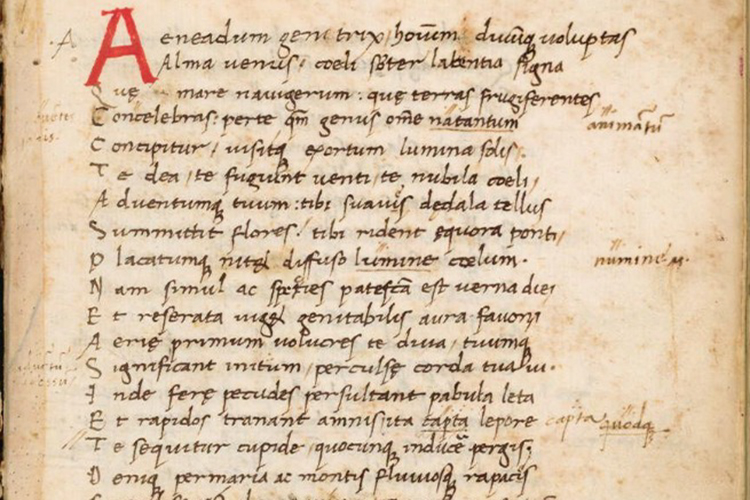 Aeneadum genitrix hoīum diuūq uoluptas
Alma uenus, coeli sƀter labentia signa
Quę mare nauigerum: quę terras frugiferentes
Concelebras: per te qm̄ genus om̄e natantum animātū
Concipitur, uisitq exortum lumina solis.
Te dea, te fugiunt uenti, te nubila coeli,
Aduentumq tuum: tibi suauis dędala tellus
Summittit flores, tibi rident ęquora ponti,
Placatumq nitet diffuso lumine coelum. numine
Nam simul ac species patefcā est uerna diei
Et reserata uiget genitabilis aura fauoni
Aerię primum uolucres te diua, tuumq
Significant initum, perculsę corda tua ui.
Inde ferę pecudes persultant pabula leta
Et rapidos tranant amnis, ita capta lepore capta quodq
Te sequitur cupide, quocunq inducē pergis;
Deniq per maria ac montis fluuiosq rapacis